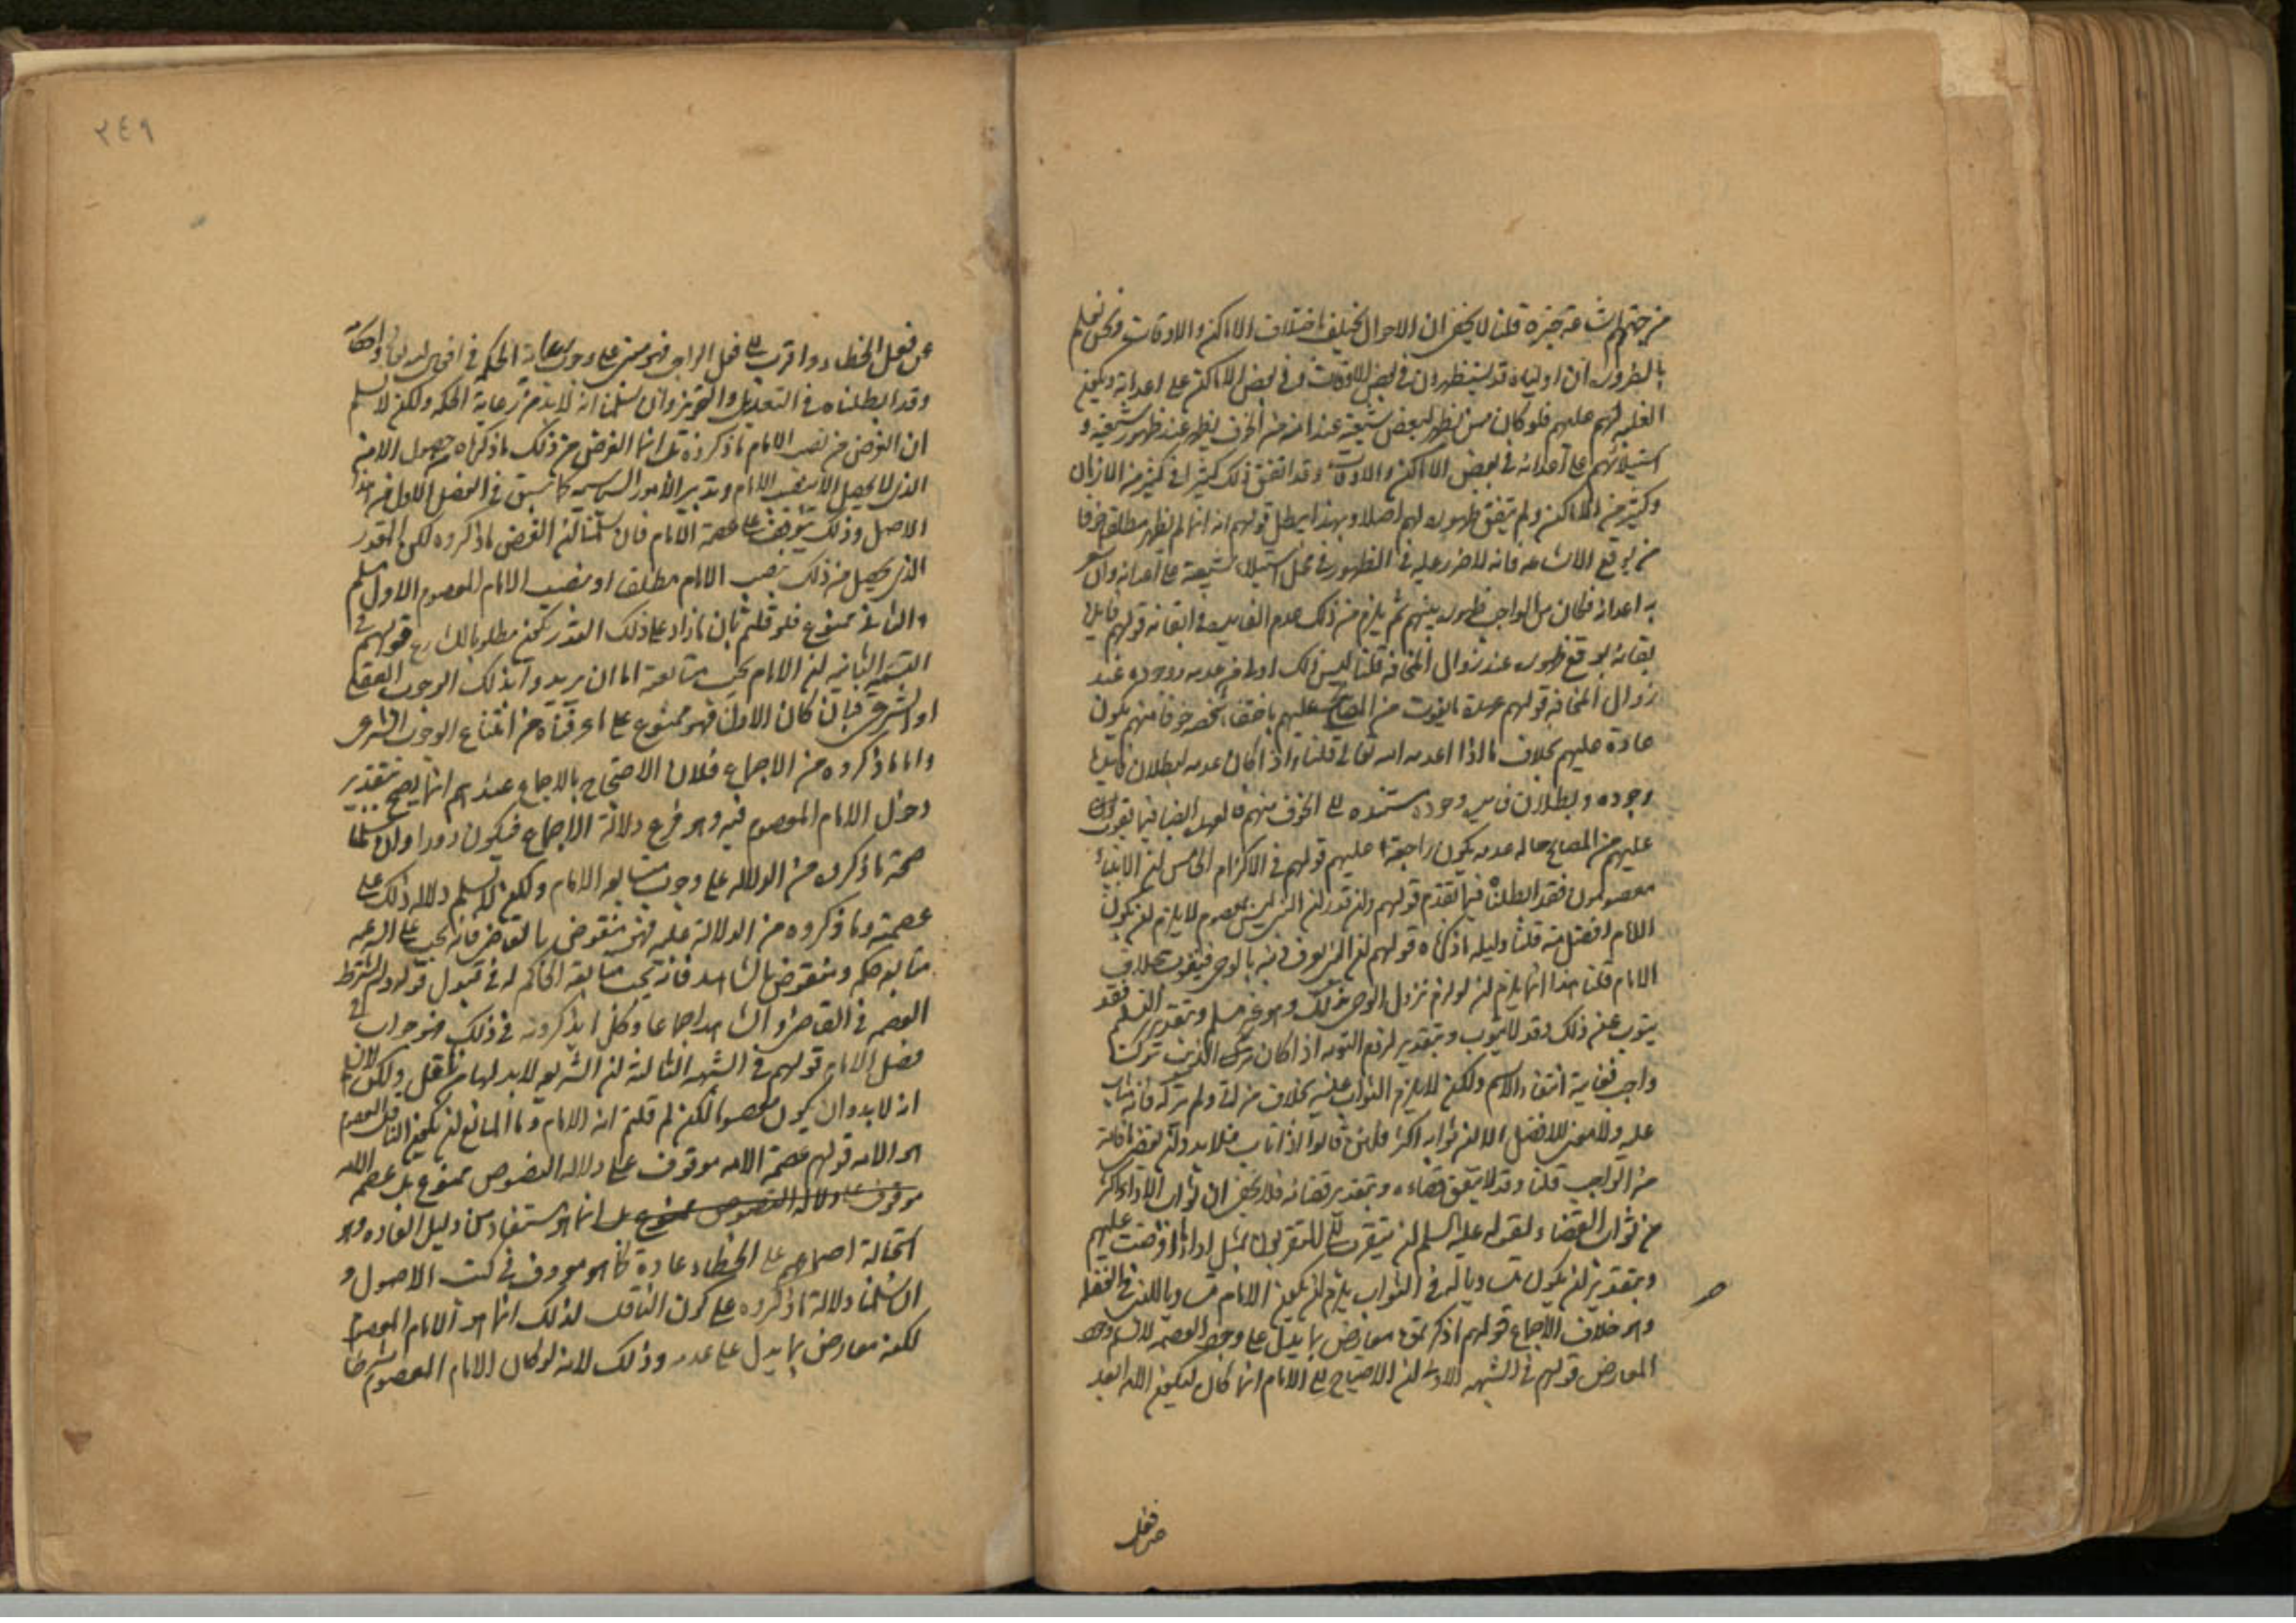 من جهتهم اشاعة خبره قلنا لا يخفى ان الاحوال تختلف باختلاف الاماكن والاوقات ونحن نعلم
بالضرورة ان اولياءه قد يستظهرون في بعض الاوقات وفي بعض الاماكن على اعدائه وتكون
الغلبة لهم عليهم فلو كان ممن يظهر لبعض شيعته عند امنه من الخوف لظهر عند ظهور شيعته و
استيلائهم على اعدائه في بعض الاماكن والاوقات وقد اتفق ذلك كثيرا في كثير من الازمان
وكثير من الاماكن ولم يتفق ظهوره لهم اصلا وبهذا يبطل قولهم انه انما لم يظهر مطلقا خوفا
من توقع الاشاعة فانه لا ضرر عليه في الظهور في محل استيلاء شيعته على اعدائه وان
به اعداؤه فكان من الواجب ظهوره بينهم ثم يلزم من ذلك عدم الفايدة في ابقائه قولهم فايدة
بقائه توقع ظهوره عند زوال المخافة قلنا ليس ذلك اولى من عدمه ووجوده عند
زوال المخافة قولهم عهدة ما يفوت من المصالح عليهم باختفاء شخصه خوفا منهم يكون
عائدة عليهم بخلاف ما اذا اعدمه الله تعالى قلنا واذا كان عدمه لبطلان فايدة
وجوده وبطلان فايدة وجوده مستندة الى الخوف منهم فالعهدة ايضا فيما يفوت
عليهم من المصالح حالة عدمه يكون راجعة عليهم قولهم في الالزام الخامس ان الانبياء
معصومون فقد ابطلناه فيما تقدم قولهم وان قدر ان النبي ليس بمعصوم لا يلزم ان يكون
الامام افضل منه قلنا دليله ما ذكرناه قولهم ان النبي يوقف نبيه بالوحي فيتوب بخلاف
الامام قلنا هذا انما يلزم ان لو لزم نزول الوحي بذلك وهو غير مسلم وبتقدير التسليم فقد
يتوب عن ذلك وقد لا يتوب وبتقدير لزوم التوبة اذا كان ترك الذنب تركت
واجب فغايته انتفاء الاثم ولكن لا يلزم الثواب عليه بخلاف من اتى ولم يترك فانه يثاب
عليه ولا معنى للافضل الا ان ثوابه اكثر فلئن قالوا اذا تاب فلا بد وان يقضي ما فاته
من الواجب قلنا وقد لا يتفق قضاءه وبتقدير قضائه فلا يخفى ان ثواب الاداء اكثر
من ثواب القضاء لقوله عليه السلم لن يتقرب الى المتقربون بمثل اداء ما افترضت عليهم
وبتقدير ان يكون مساويا له في الثواب يلزم ان يكون الامام مساويا للنبي في الفضل
وهو خلاف الاجماع قولهم ما ذكرتموه معارض بما يدل على وجوب العصمة لا نسلم وجود
المعارض قولهم في الشبهة الاولى ان الاحتياج الى الامام انما كان ليكون الامة ابعد
عن فعل
عن فعل الخطاء واقرب الى فعل الواجب فهو مبني على وجوب رعاية الحكمة في افعال الله تعالى واحكامه
وقد ابطلناه في التعديل والتجويز وان سلمنا انه لا بد من رعاية الحكمة ولكن لا نسلم
ان الغرض من نصب الامام ما ذكروه بل انما الغرض من ذلك ما ذكرناه من حصول الامن
الذي لا يحصل الا بنصب الامام وتدبير الامور السياسية كما سبق في الفصل الاول من هذا
الاصل وذلك لا يتوقف على عصمة الامام فان سلمنا ان الغرض ما ذكروه لكن القدر
الذي يحصل من ذلك بنصب الامام مطلقا او بنصب الامام المعصوم الاول مسلم
والثاني ممنوع فلم قلتم بان ما زاد على ذلك القدر يكون مطلوبا للشارع قولهم في
الشبهة الثانية ان الامام يجب متابعته اما ان يريدوا بذلك الوجوب العقلي
او الشرعي فان كان الاول فهو ممنوع على ما عرفناه من امتناع الوجوب الشرعي
واما ما ذكروه من الاجماع فلان الاحتجاج بالاجماع عندهم انما يصح بتقدير
دخول الامام المعصوم فيه وهو فرع دلالة الاجماع فيكون دورا وان سلمنا
صحة ما ذكروه من الدلالة على وجوب متابعة الامام ولكن لا نسلم دلالة ذلك على
عصمته وما ذكروه من الدلالة عليه فهو منقوض بالقاضي فانه يجب على الرعية
متابعة حكمه ومنقوض بالشاهد فانه يجب متابعة الحاكم له في قبول قوله ولم يشترط
العصمة في القاضي والشاهد اجماعا وكل ما يذكرونه في ذلك فهو جوابنا في
فصل الامام قولهم في الشبهة الثالثة ان الشريعة لا بد لها من ناقل ولكن لان
انه لا بد وان يكون معصوما لكن لم قلتم انه الامام وما المانع ان يكون الناقل المعصوم
هو الامة قولهم عصمة الامة موقوف على دلالة النصوص ممنوع بل عصمة الامة
موقوف على دلالة النصوص ممنوع بل انما هو مستفاد من دليل العادة وهو
استحالة اجماعهم على الخطاء عادة كما هو معروف في كتب الاصول و
ان سلمنا دلالة ما ذكروه على كون الناقل لذلك انما هو الامام المعصوم
لكنه معارض بما يدل على عدمه وذلك لانه لو كان الامام المعصوم شرطا
٢٤٩